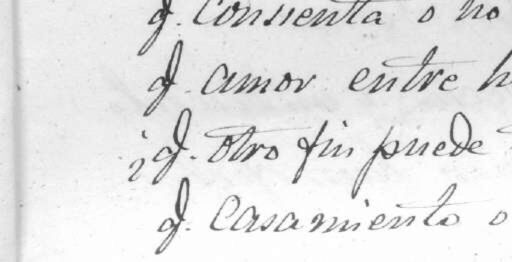 q. Consienta o no
q. amor entre h
¿q. otro fin puede
q. Casamiento o